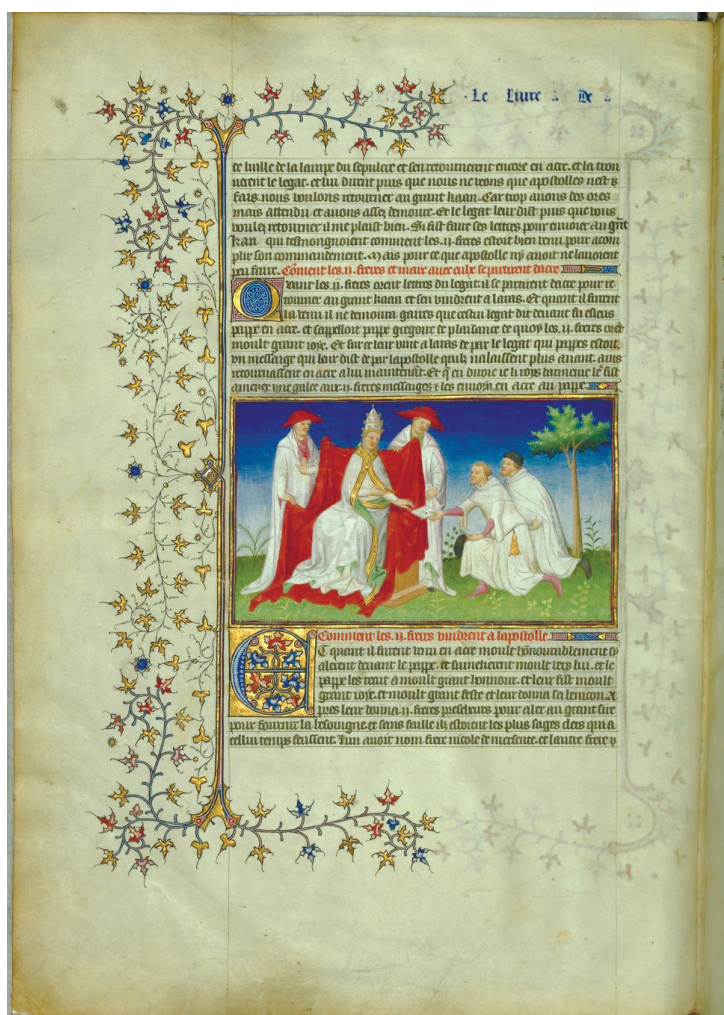 Le liure :. De :.
de luille de la lampe du sepulcre et sen retournerent encore en acre. et la trou
uerent le legat. et lui dirent puis que nous ne veons que apostolles nest
fais. nous voulons retourner au grant kaan. Car trop auons des ores
mais attendu et auons assez demoure. Et le legat leur dist puis que vous
voulez retourner il me plaist bien. Si fist faire ses lettres pour enuoier au grāt
kan qui tesmongnoient comment les .ij. freres estoit bien venu pour acom
plir son commandement. Mais pour ce que apostolle ny auoit ne lauoient
peu faire. Cōment les .ij. freres et marc auec eulx se partirent dacre
Quant les .ij. freres orent lettres du legat. il se partirent dacre pour re
tourner au grant kaan et sen vindrent a laias. Et quant il furent
la venu il ne demoura gaires que cestui legat dit deuant fu esleus
pappe en acre. et sappelloit pappe gregoire de plaisance de quoy les .ij. freres orēt
moult grant ioye. Et sur ce leur vint a laias de par le legat qui pappes estoit.
vn message qui leur dist de par lapostolle quilz nalaissent plus auant. ains
retournassent en acre a lui maintenāt. Et
amener vne galee aux .ij. freres messages et les enuoya en acre au pappe
Comment les .ij. freres vindrent a lapostolle
Et quant il furent venu en acre moult hōnourablement
alerent deuant le pappe. et sumelierent moult vers lui. et le
pappe les recut a moult grant honnour. et leur fist moult
grant ioye. et moult grant feste et leur donna sa beneicon. A
pres leur donna .ij. freres prescheurs pour aler au grant sire
pour fournir la besoingne. et sans faille ilz estoient les plus sages clers qui a
cellui temps feussent. lun auoit nom frere nicole de et lautre frere